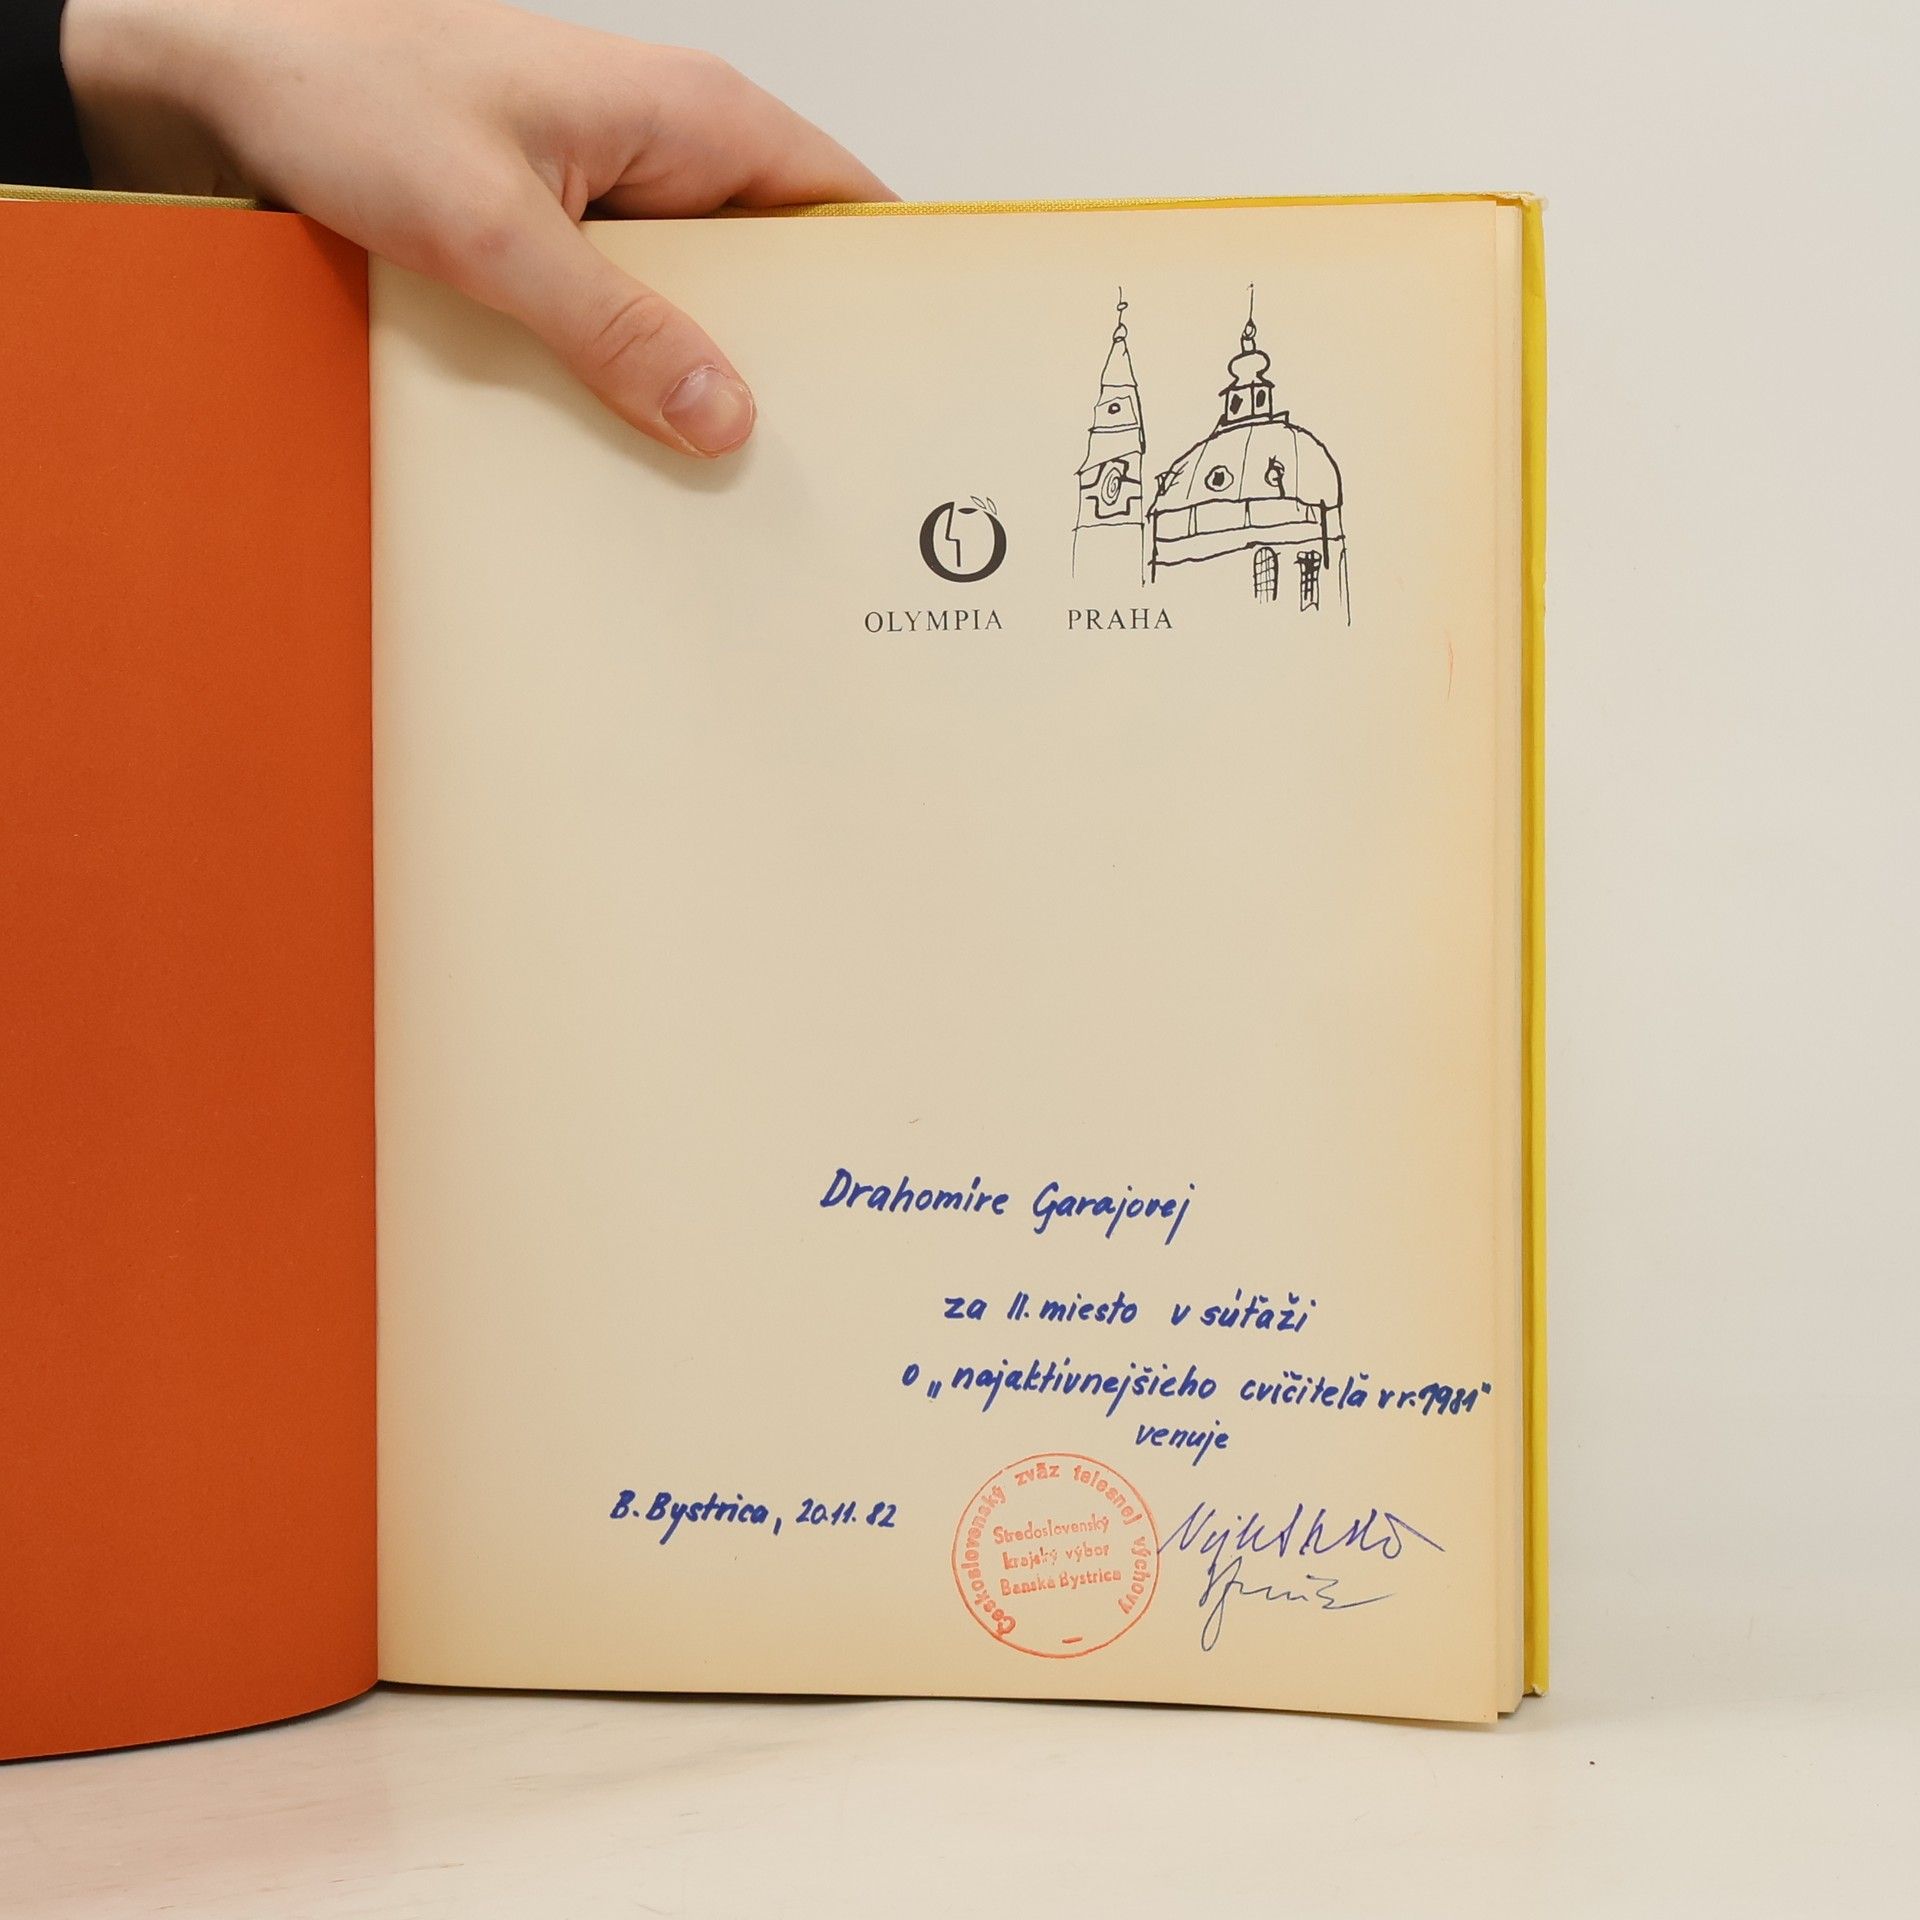 OLYMPIA PRAHA
Drahomíre Garajovej
za II. miesto v súťaži
o „najaktívnejšieho cvičiteľa v r. 1981"
venuje
B. Bystrica, 20.11.82
Československý zväz telesnej výchovy
Stredoslovenský
krajský výbor
Banská Bystrica